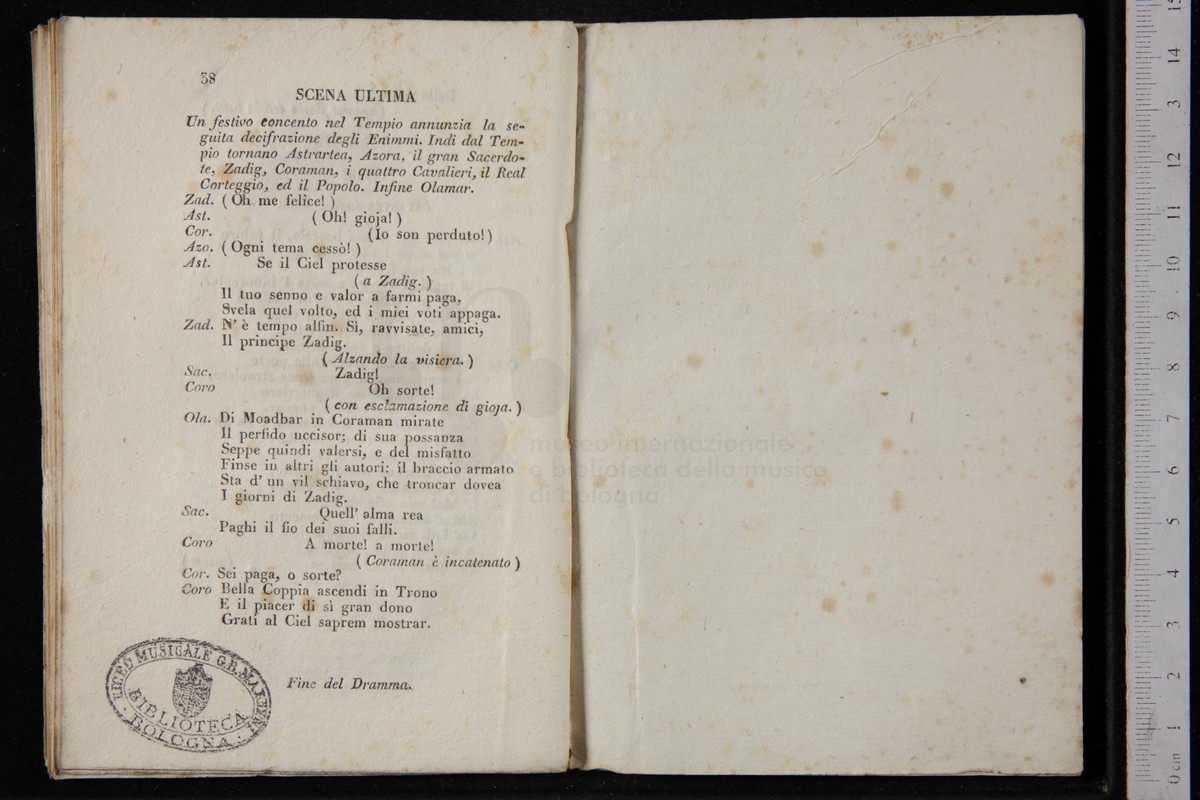 38
SCENA ULTIMA
Un festivo concento nel Tempio annunzia la se-
guita decifrazione degli Enimmi. Indi dal Tem-
pio tornano Astrartea, Azora, il gran Sacerdo-
te, Zadig, Coraman, i quattro Cavalieri, il Real
Corteggio, ed il Popolo. Infine Olamar.
Zad. ( Oh me felice! )
Ast. ( Oh! gioja! )
Cor. (Io son perduto!)
Azo. ( Ogni tema cessò! )
Ast. Se il Ciel protesse
( a Zadig. )
Il tuo senno e valor a farmi paga,
Svela quel volto, ed i miei voti appaga.
Zad. N' è tempo alfin. Sì, ravvisate, amici,
Il principe Zadig.
( Alzando la visiera. )
Sac. Zadig!
Coro Oh sorte!
( con esclamazione di gioja. )
Ola. Di Moadbar in Coraman mirate
Il perfido uccisor; di sua possanza
Seppe quindi valersi, e del misfatto
Finse in altri gli autori: il braccio armato
Sta d' un vil schiavo, che troncar dovea
I giorni di Zadig.
Sac. Quell' alma rea
Paghi il fio dei suoi falli.
Coro A morte! a morte!
( Coraman è incatenato )
Cor. Sei paga, o sorte?
Coro Bella Coppia ascendi in Trono
E il piacer di sì gran dono
Grati al Ciel saprem mostrar.
Fine del Dramma.
LICEO MUSICALE G.B. MARTINI
BIBLIOTECA
BOLOGNA
museo internazionale
e biblioteca della musica
di bologna
0 cm 1 2 3 4 5 6 7 8 9 10 11 12 3 14 15